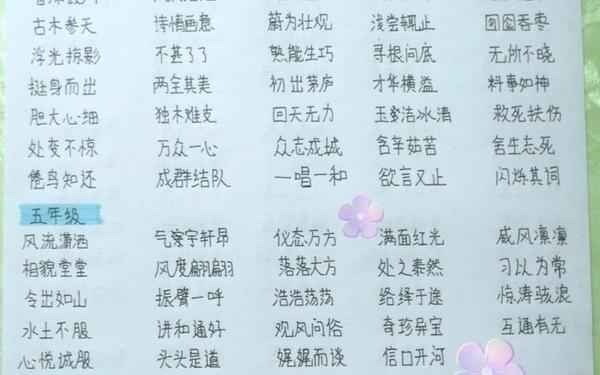 古木参天 诗情画意 蔚为壮观 浅尝辄止 囫囵吞枣
浮光掠影 不甚了了 熟能生巧 寻根问底 无所不晓
挺身而出 两全其美 初出茅庐 才华横溢 料事如神
胆大心细 独木难支 回天无力 玉洁冰清 救死扶伤
处变不惊 万众一心 众志成城 含辛茹苦 舍生忘死
倦鸟知还 成群结队 一唱一和 欲言又止 闪烁其词
五年级
风流潇洒 气宇轩昂 仪态万方 满面红光 威风凛凛
相貌堂堂 风度翩翩 落落大方 处之泰然 习以为常
令出如山 振臂一呼 浩浩荡荡 络绎于途 惊涛骇浪
水土不服 讲和通好 观风问俗 奇珍异宝 互通有无
心悦诚服 头头是道 娓娓而谈 信口开河